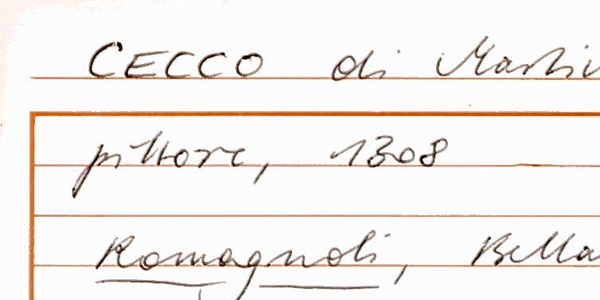 CECCO di Martin
pittore, 1308
Romagnoli, Bella